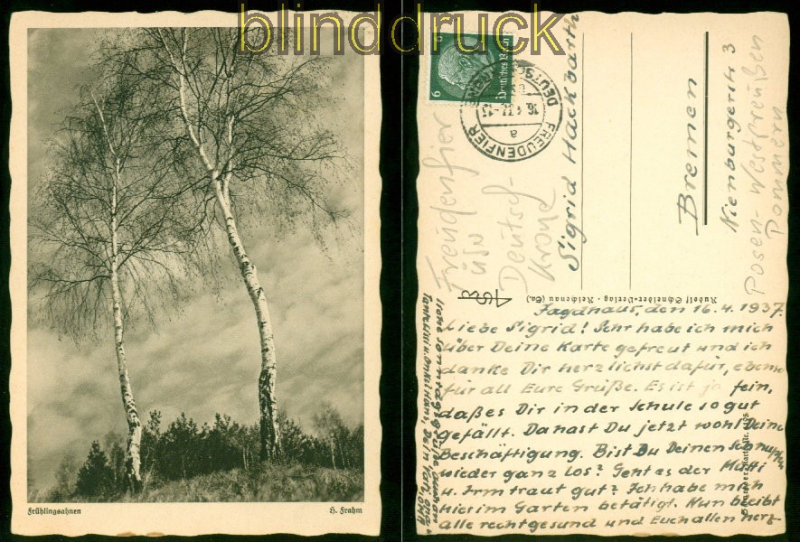 blinddruck
Frühlingsahnen
H. Frahm
Deutsches Reich
6
6
FREUDENFIER
a
DEUTSCH
Sigrid Hackbarth
Bremen
Nienburgerstr 3
Posen-Westpreußen
Pommern
Freudenfier
üb
Deutsch-
Krone
Rudolf Schneider-Verlag - Reichenau (Sa.)
Jagdhaus, den 16.4.1937.
Liebe Sigrid! Sehr habe ich mich
über Deine Karte gefreut und ich
danke Dir herzlichst dafür, ebenso
für all Eure Grüße. Es ist ja fein,
daß es Dir in der Schule so gut
gefällt. Da hast Du jetzt wohl Deine
Beschäftigung. Bist Du Deinen Schnupfen
wieder ganz los? Geht es der Mutti
u. Irmtraut gut? Ich habe mich
hier im Garten betätigt. Nun bleibt
alle recht gesund und Euch allen herz
Sonntagsgrüße
Onkel Hans,